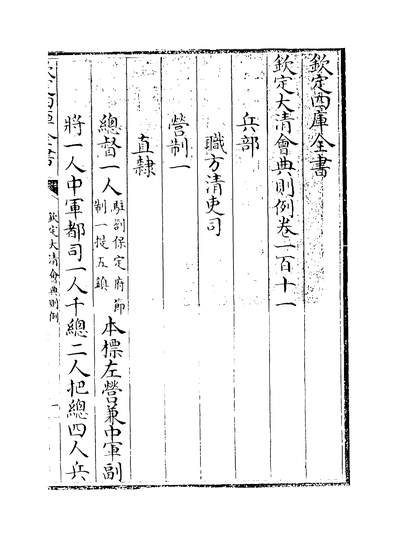 欽定四庫全書
欽定大清會典則例卷一百十一
兵部
職方清吏司
營制一
直隸
總督一人駐劄保定府節制一提五鎮本標左營兼中軍副
將一人中軍都司一人千總二人把總四人兵
欽定大清會典則例